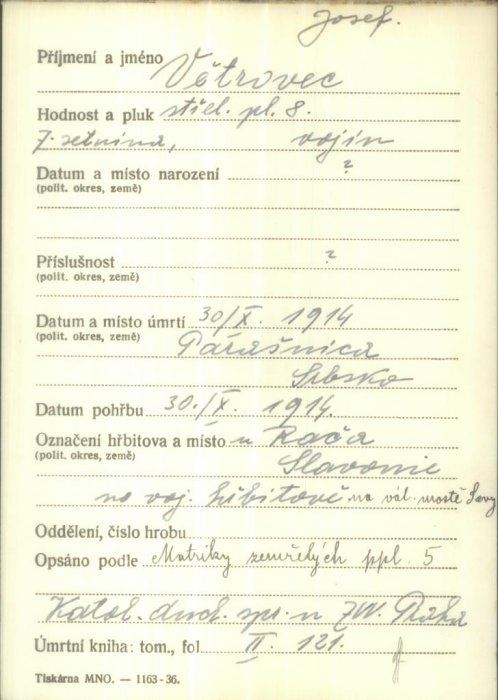 Josef.
Příjmení a jméno Větrovec
Hodnost a pluk střel. pl. 8.
7. setnina, vojín
Datum a místo narození ?
(polit. okres, země)
Příslušnost ?
(polit. okres, země)
Datum a místo úmrtí 30/X. 1914
(polit. okres, země) Parašnica
Srbsko
Datum pohřbu 30./X. 1914.
Označení hřbitova a místo u Rača
(polit. okres, země) Slavonie
na voj. hřbitově na vál. mostě Savy
Oddělení, číslo hrobu
Opsáno podle Matriky zemřelých ppl. 5
Katol. duch. spr. u ZVV. Praha
Úmrtní kniha: tom., fol II. 121.
Tiskárna MNO. — 1163-36.